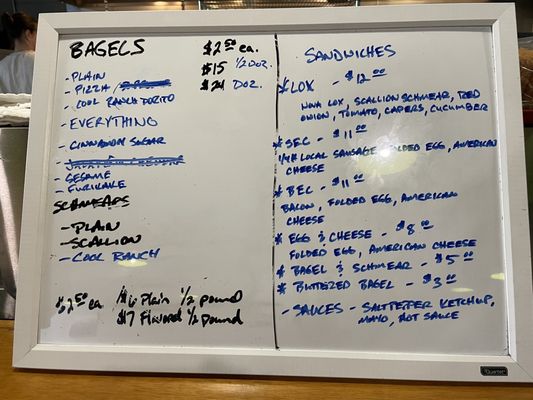 BAGELS
$2.50 ea.
$15 1/2 DOZ.
$24 DOZ.
- PLAIN
- PIZZA /
- COOL RANCH DORITO
- EVERYTHING
- CINNAMON SUGAR
- SESAME
- FURIKAKE
SCHMEARS
- PLAIN
- SCALLION
- COOL RANCH
$2.50 ea / $6 Plain 1/2 pound
$7 Flavored 1/2 pound
SANDWICHES
* LOX - $12.00
NOVA LOX, SCALLION SCHMEAR, RED
ONION, TOMATO, CAPERS, CUCUMBER
* SEC - $11.00
1/4# LOCAL SAUSAGE, FOLDED EGG, AMERICAN
CHEESE
* BEC - $11.00
BACON, FOLDED EGG, AMERICAN
CHEESE
* EGG & CHEESE - $8.00
FOLDED EGG, AMERICAN CHEESE
* BAGEL & SCHMEAR - $5.00
* BUTTERED BAGEL - $3.00
- SAUCES - SALT PEPPER KETCHUP,
MAYO, HOT SAUCE
Quartet